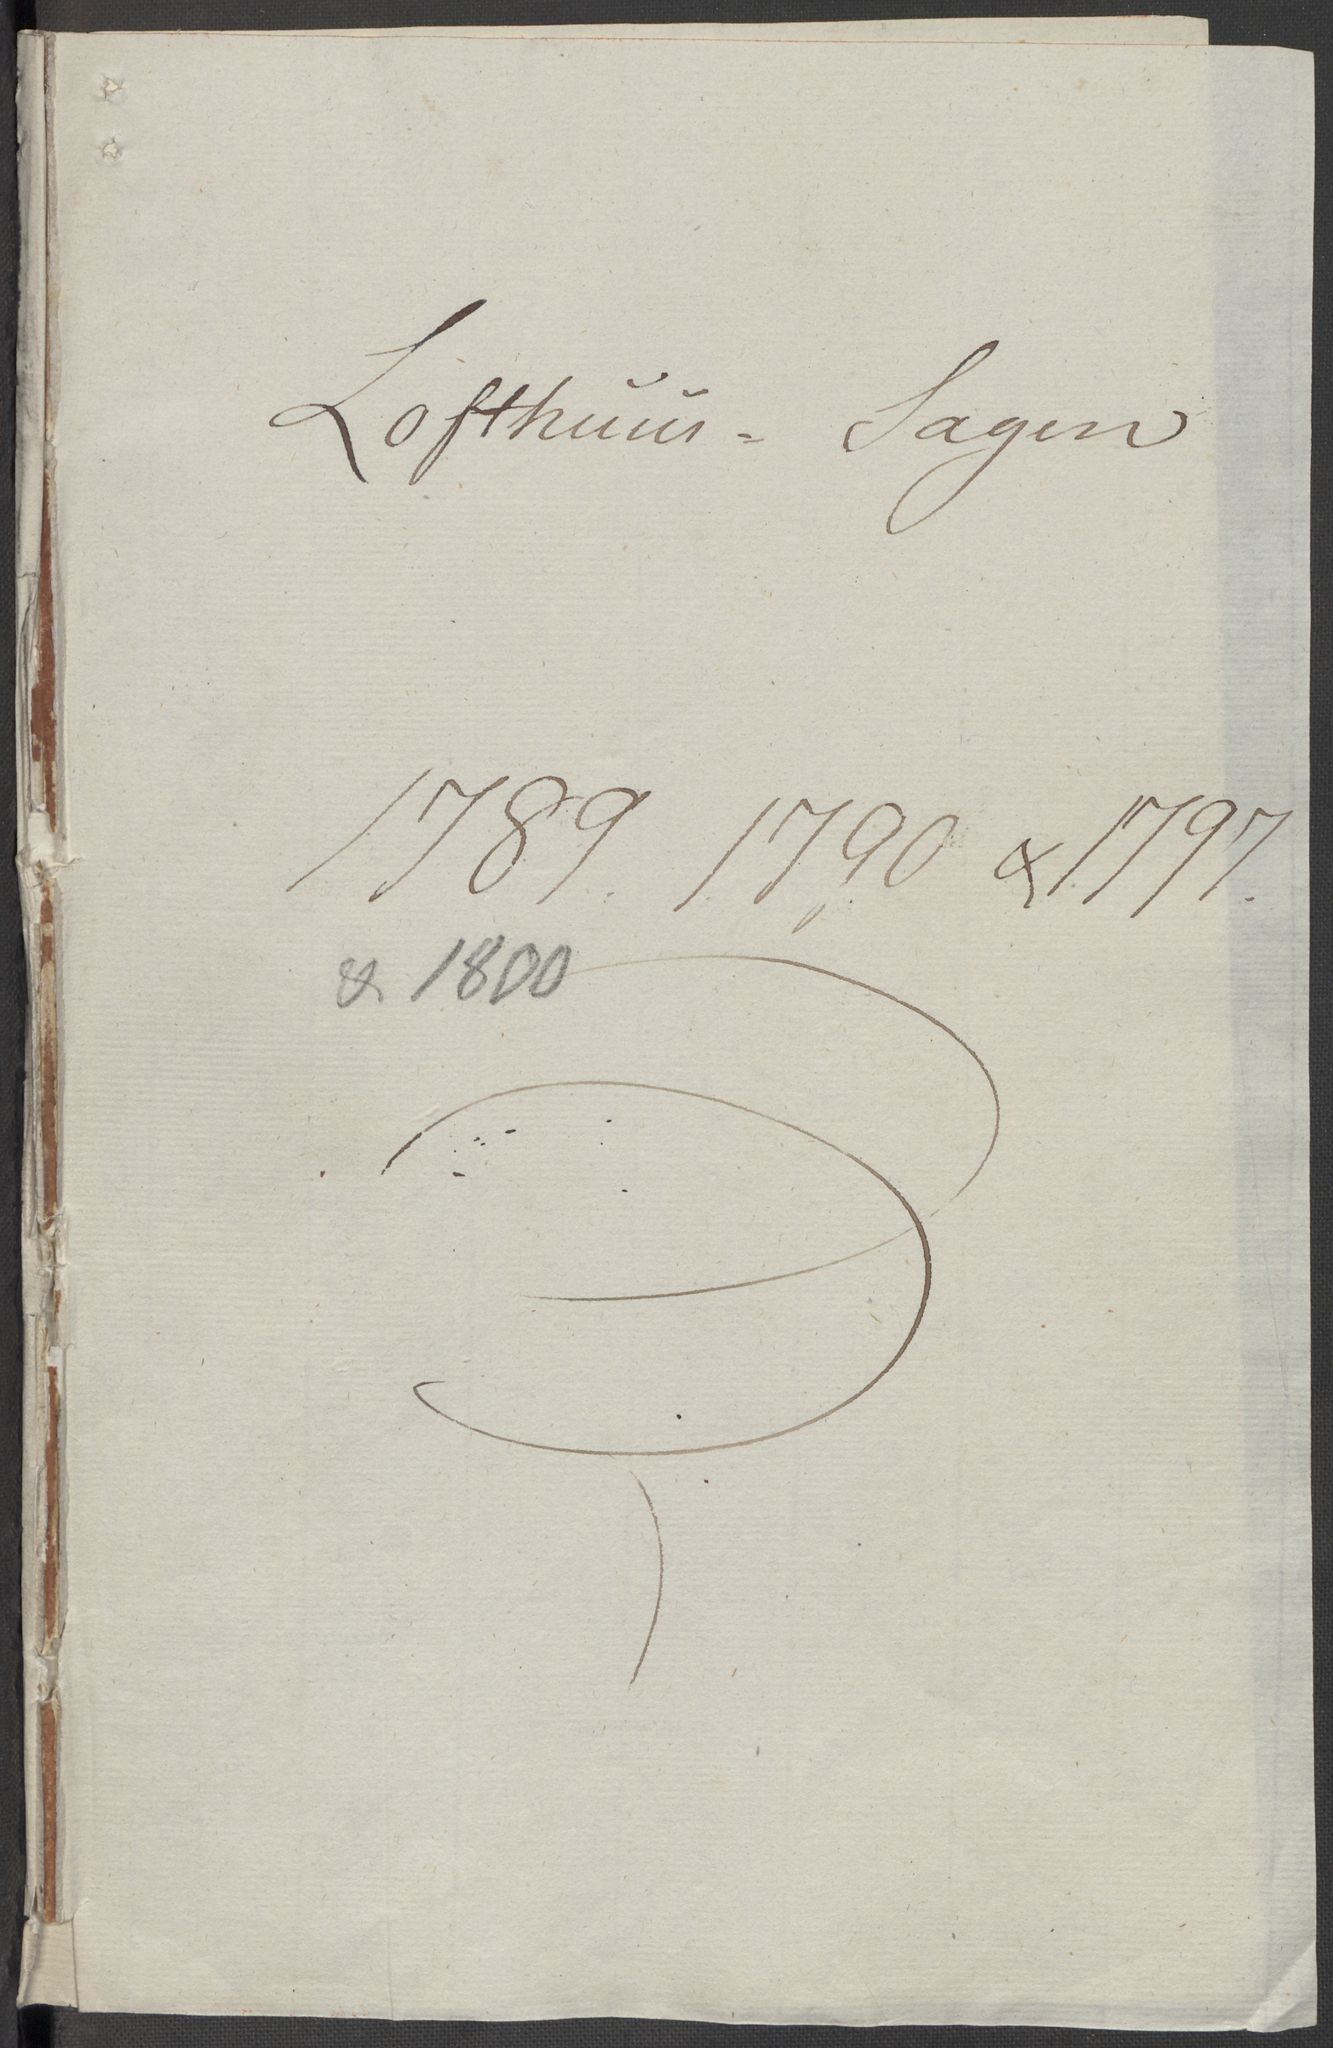 Lofthuus = Sagen
1789. 1790 & 1797.
& 1800